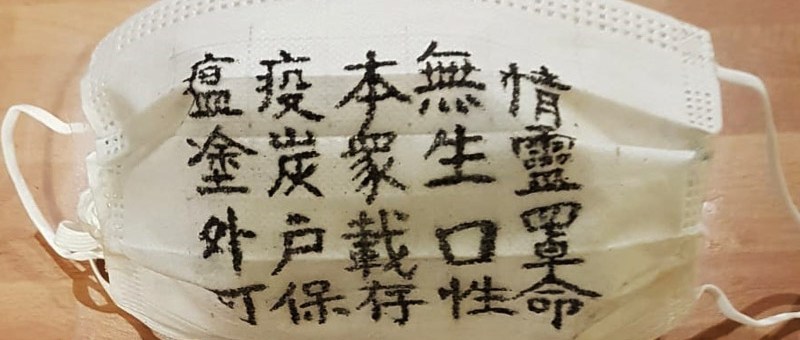 瘟疫本無情
塗炭衆生靈
外戶載口罩
可保存性命